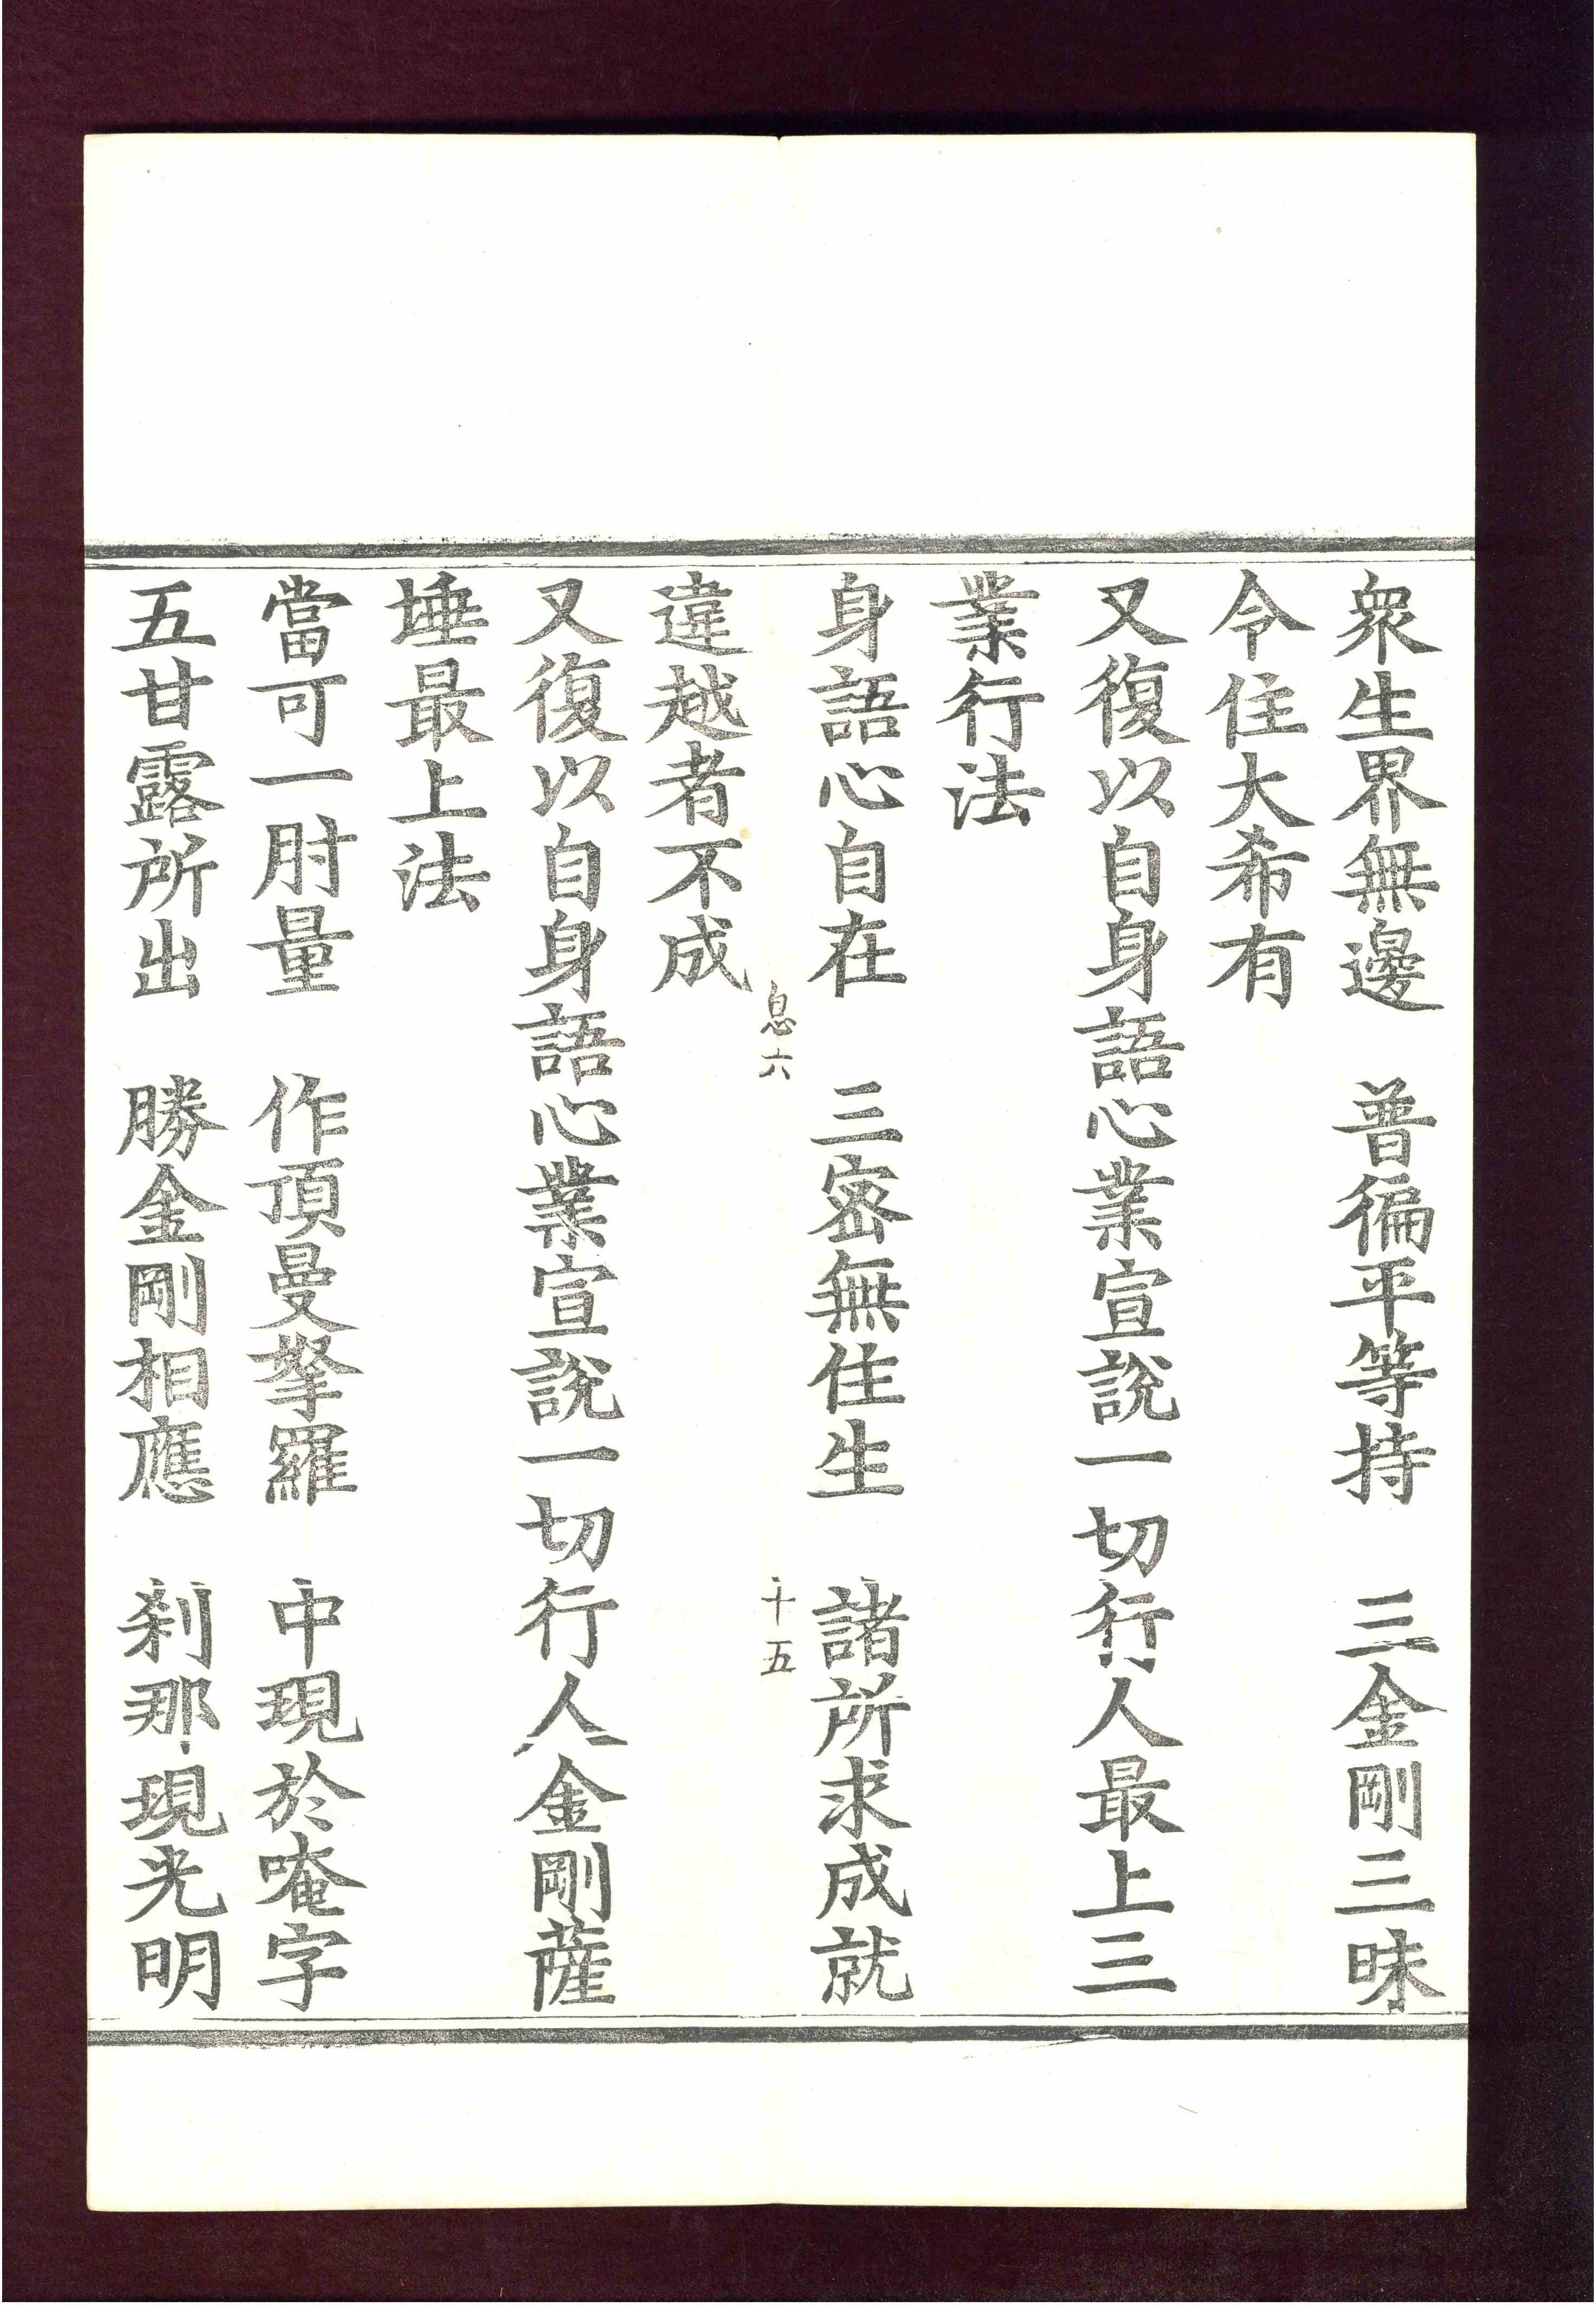 衆生界無邊　普徧平等持　三金剛三昧
令住大希有
又復以自身語心業宣說一切行人最上三
業行法
身語心自在　三密無住生　諸所求成就
息六　十五
違越者不成
又復以自身語心業宣說一切行人金剛薩
埵最上法
當可一肘量　作頂曼拏羅　中現於唵字
五甘露所出　勝金剛相應　刹那現光明